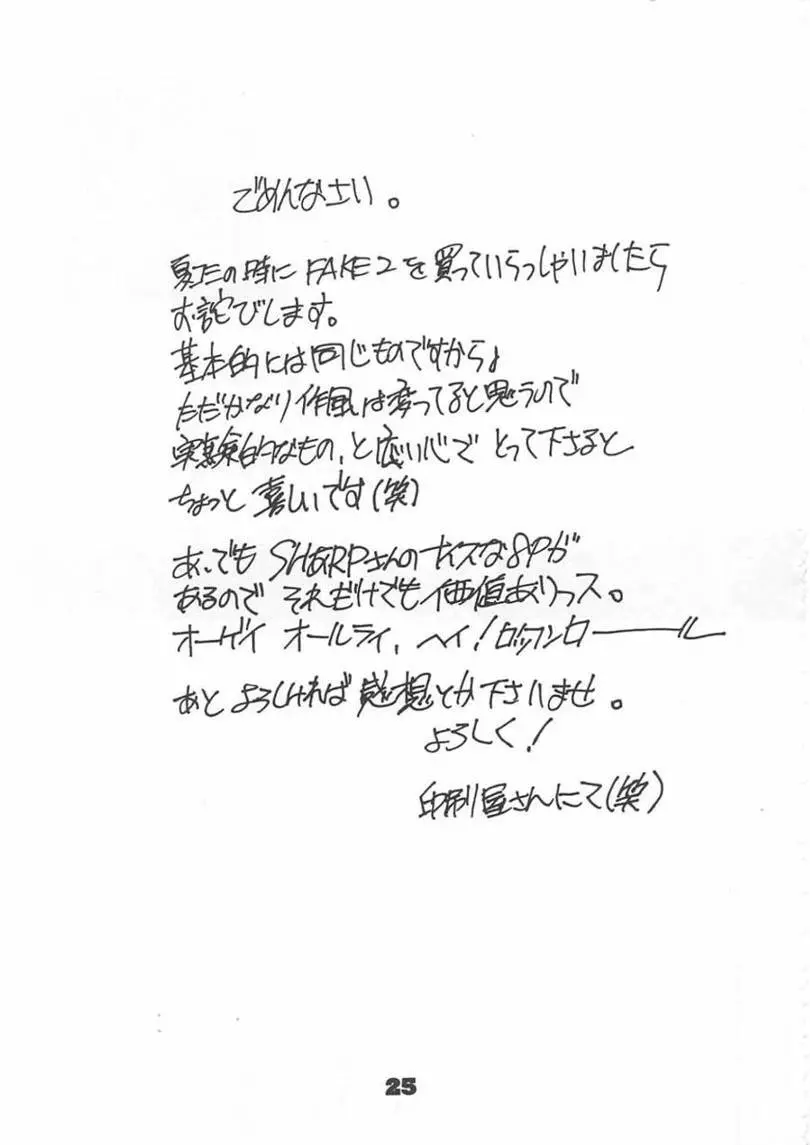 ごめんなさい。
夏の時に FAKE2 を買っていらっしゃいましたら
お詫びします。
基本的には同じものですから、
ただかなり作風は変ってると思うので
実験的なもの、と広い心で とって下さると
ちょっと 嬉しいです(笑)
あ、でも SHARPさんのナイスな8Pが
あるので それだけでも価値ありっス。
オーゲイ オールライ、ヘイ!ロックンロール
あと よろしければ 感想とか下さいませ。
よろしく!
印刷屋さんにて(笑)
25